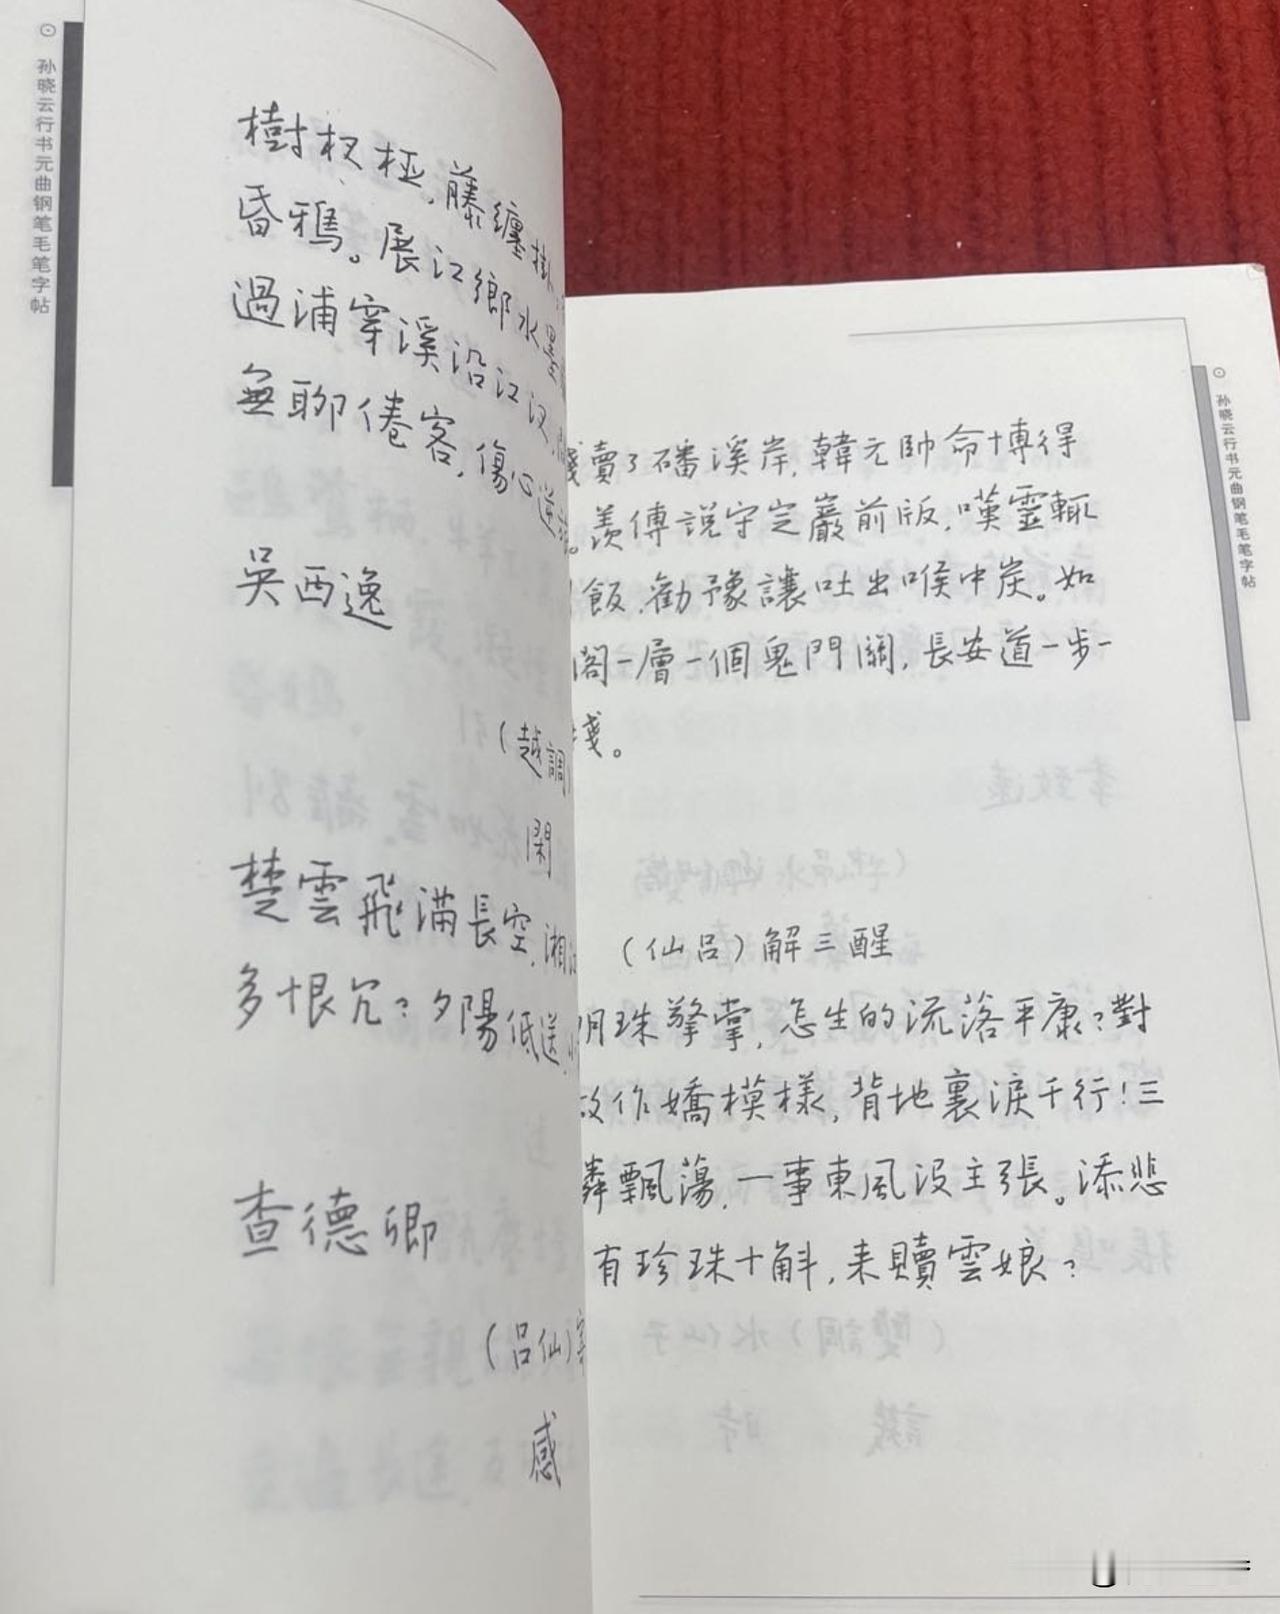 孙晓云行书元曲钢笔毛笔字帖
樹杈椏，藤纏掛，
昏鴉。展江鄉水墨
過浦穿溪沿江汊，
無聊倦客，傷心逆
吳西逸
（越調）
閑
楚雲飛滿長空，湘
多恨冗？夕陽低送，
查德卿
（吕仙）寄
感
孙晓云行书元曲钢笔毛笔字帖
賣了磻溪岸，韓元帥命博得
。羨傅説守定巖前版，嘆靈輒
飯，勸予豫讓吐出喉中炭。如
閣一層一個鬼門關，長安道一步一
棧。
（仙吕）解三酲
明珠擎掌，怎生的流落平康？對
故作嬌模樣，背地裏淚千行！三
飄蕩，一事東風没主張。添悲
有珍珠十斛，来贖雲娘？